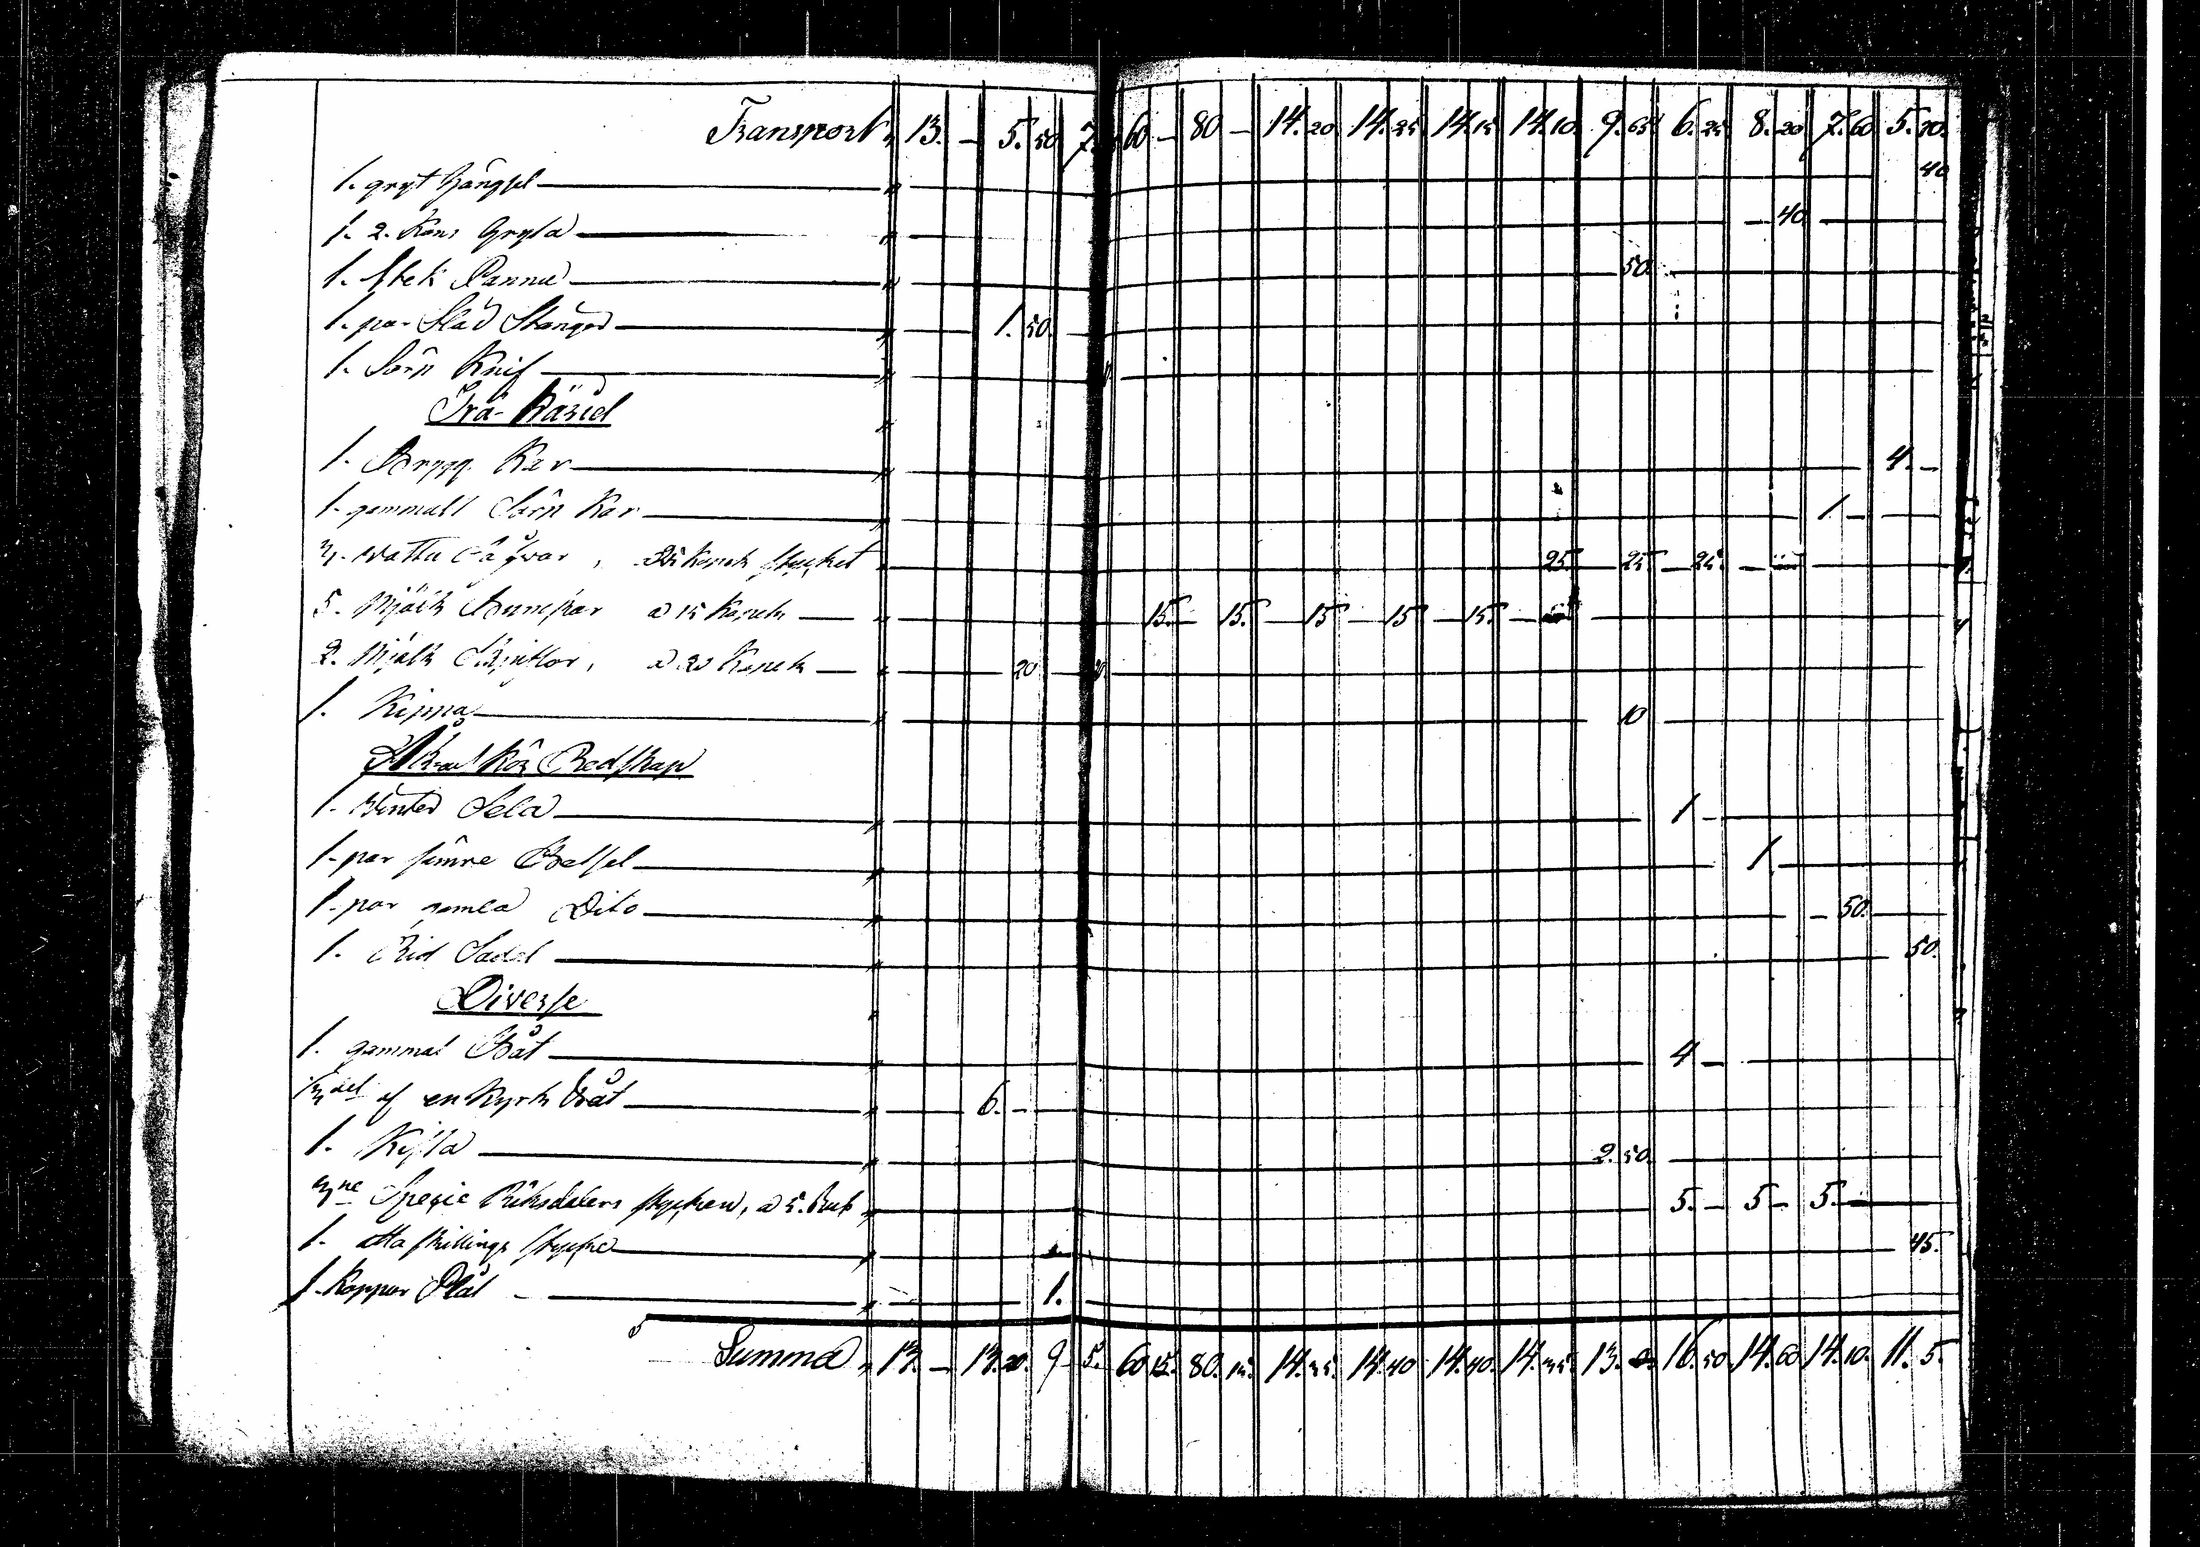 Transport 13. — 5. 50 7. 60 — 80 — 14. 20 14. 25 14. 15 14. 10 9. 65 6. 25 8. 20 7. 60 5. 70
1. gryt hängsel 40
1. 2. Kans Gryta 40
1. Stek Panna 50
1. par Släd Stänger 1. 50
1. Sörp Knif
Trä-Käril
1. Brygg Kar 4. —
1. gammalt Sörp Kar 1. —
3. Vattu Såävar, 25 Kopek stycket 25 25 25
5. Mjölk Bunckar a 15 Kopek 15 15 15 15 15
2. Mjölk Skjuttor, a 20 Kopek 20
1. Kippa 10
Åk och Kör Redskap
1. Winter Sela 1 —
1. par sämre Betsel 1
1. par gamla Dito 50
1. Rid Sadel 50
Diverse
1. gammal Båt 4 —
1/3 del af en Kyrk Båt 6. —
1. Kista 2. 50
3ne Specie Riksdalers stycken, a 5. Rub 5. — 5 — 5. —
1. Åtta skillings stycke 45
1. Koppar Plåt 1.
Summa 13. — 13. 20 9 5. 60 15. 80. 15. 14. 35. 14. 40 14. 40. 14. 35. 13. 16. 50 14. 60 14. 10. 11. 5.